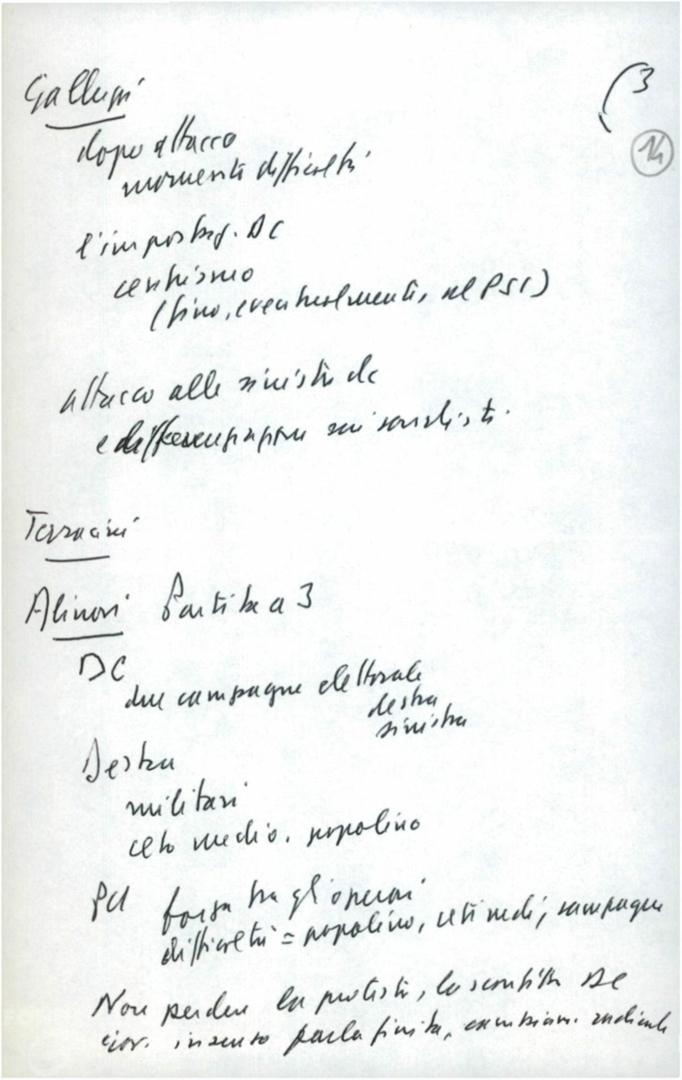 Galluzzi
(3
14
dopo attacco
momento difficoltà
l'impostaz. DC
centrismo
(fino, eventualmente, al PSI)
attacco alle sinistre dc
e differenziazione sui socialisti.
Terracini
Alinovi Partita a 3
DC
due campagne elettorale
destra
sinistra
Destra
militari
ceto medio. popolino
PCI forza tra gli operai
difficoltà = popolino, ceti medi, campagne
Non perdere la protesta, la sconfitta DC
gov. insenso finita, radicale